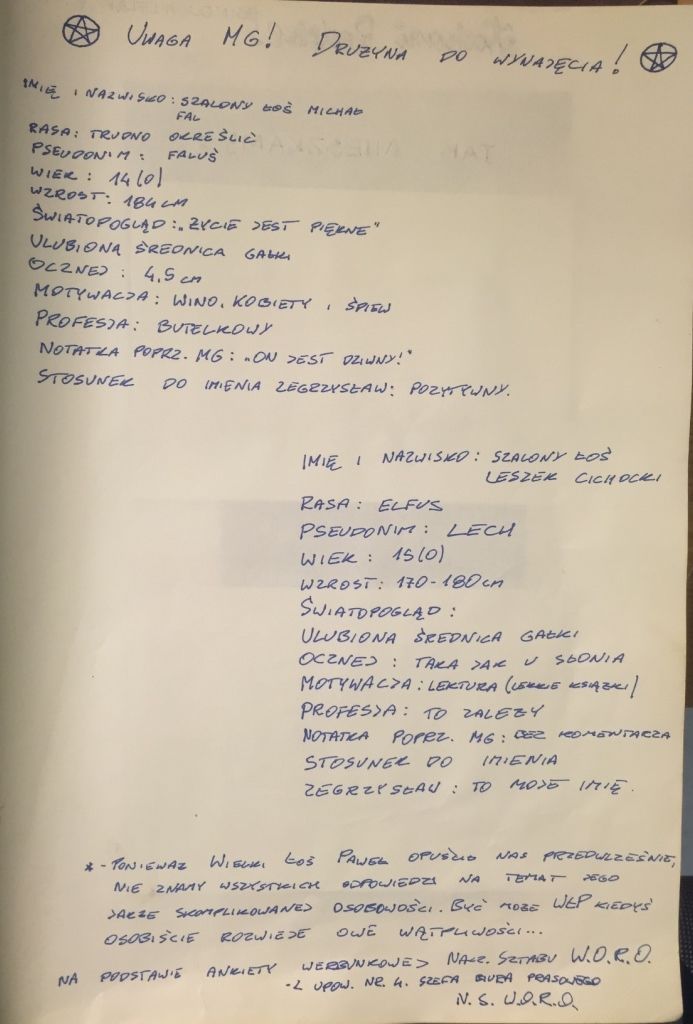 UWAGA MG! DRUŻYNA DO WYNAJĘCIA!
IMIĘ I NAZWISKO: SZALONY ŁOŚ MICHAŁ
FAL
RASA: TRUDNO OKREŚLIĆ
PSEUDONIM: FALUŚ
WIEK: 14(0)
WZROST: 184 CM
ŚWIATOPOGLĄD: „ŻYCIE JEST PIĘKNE"
ULUBIONA ŚREDNICA GAŁKI
OCZNEJ: 4,5 CM
MOTYWACJA: WINO, KOBIETY I ŚPIEW
PROFESJA: BUTELKOWY
NOTATKA POPRZ. MG: „ON JEST DZIWNY!"
STOSUNEK DO IMIENIA ZEGRZYSŁAW: POZYTYWNY.
IMIĘ I NAZWISKO: SZALONY ŁOŚ
LESZEK CICHOCKI
RASA: ELFUS
PSEUDONIM: LECH
WIEK: 15(0)
WZROST: 170-180 CM
ŚWIATOPOGLĄD:
ULUBIONA ŚREDNICA GAŁKI
OCZNEJ: TAKA JAK U SŁONIA
MOTYWACJA: LEKTURA (LEKKIE KSIĄŻKI)
PROFESJA: TO ZALEŻY
NOTATKA POPRZ. MG: BEZ KOMENTARZA
STOSUNEK DO IMIENIA
ZEGRZYSŁAW: TO MOJE IMIĘ.
* - PONIEWAŻ WIELKI ŁOŚ PAWEŁ OPUŚCIŁ NAS PRZEDWCZEŚNIE,
NIE ZNAMY WSZYSTKICH ODPOWIEDZI NA TEMAT JEGO
JAKŻE SKOMPLIKOWANEJ OSOBOWOŚCI. BYĆ MOŻE WŁP KIEDYŚ
OSOBIŚCIE ROZWIEJE OWE WĄTPLIWOŚCI...
NA PODSTAWIE ANKIETY WERBUNKOWEJ NACZ. SZTABU W.O.R.O.
- Z UPOW. NR. 4. SZEFA BIURA PRASOWEGO
N.S. W.O.R.O.